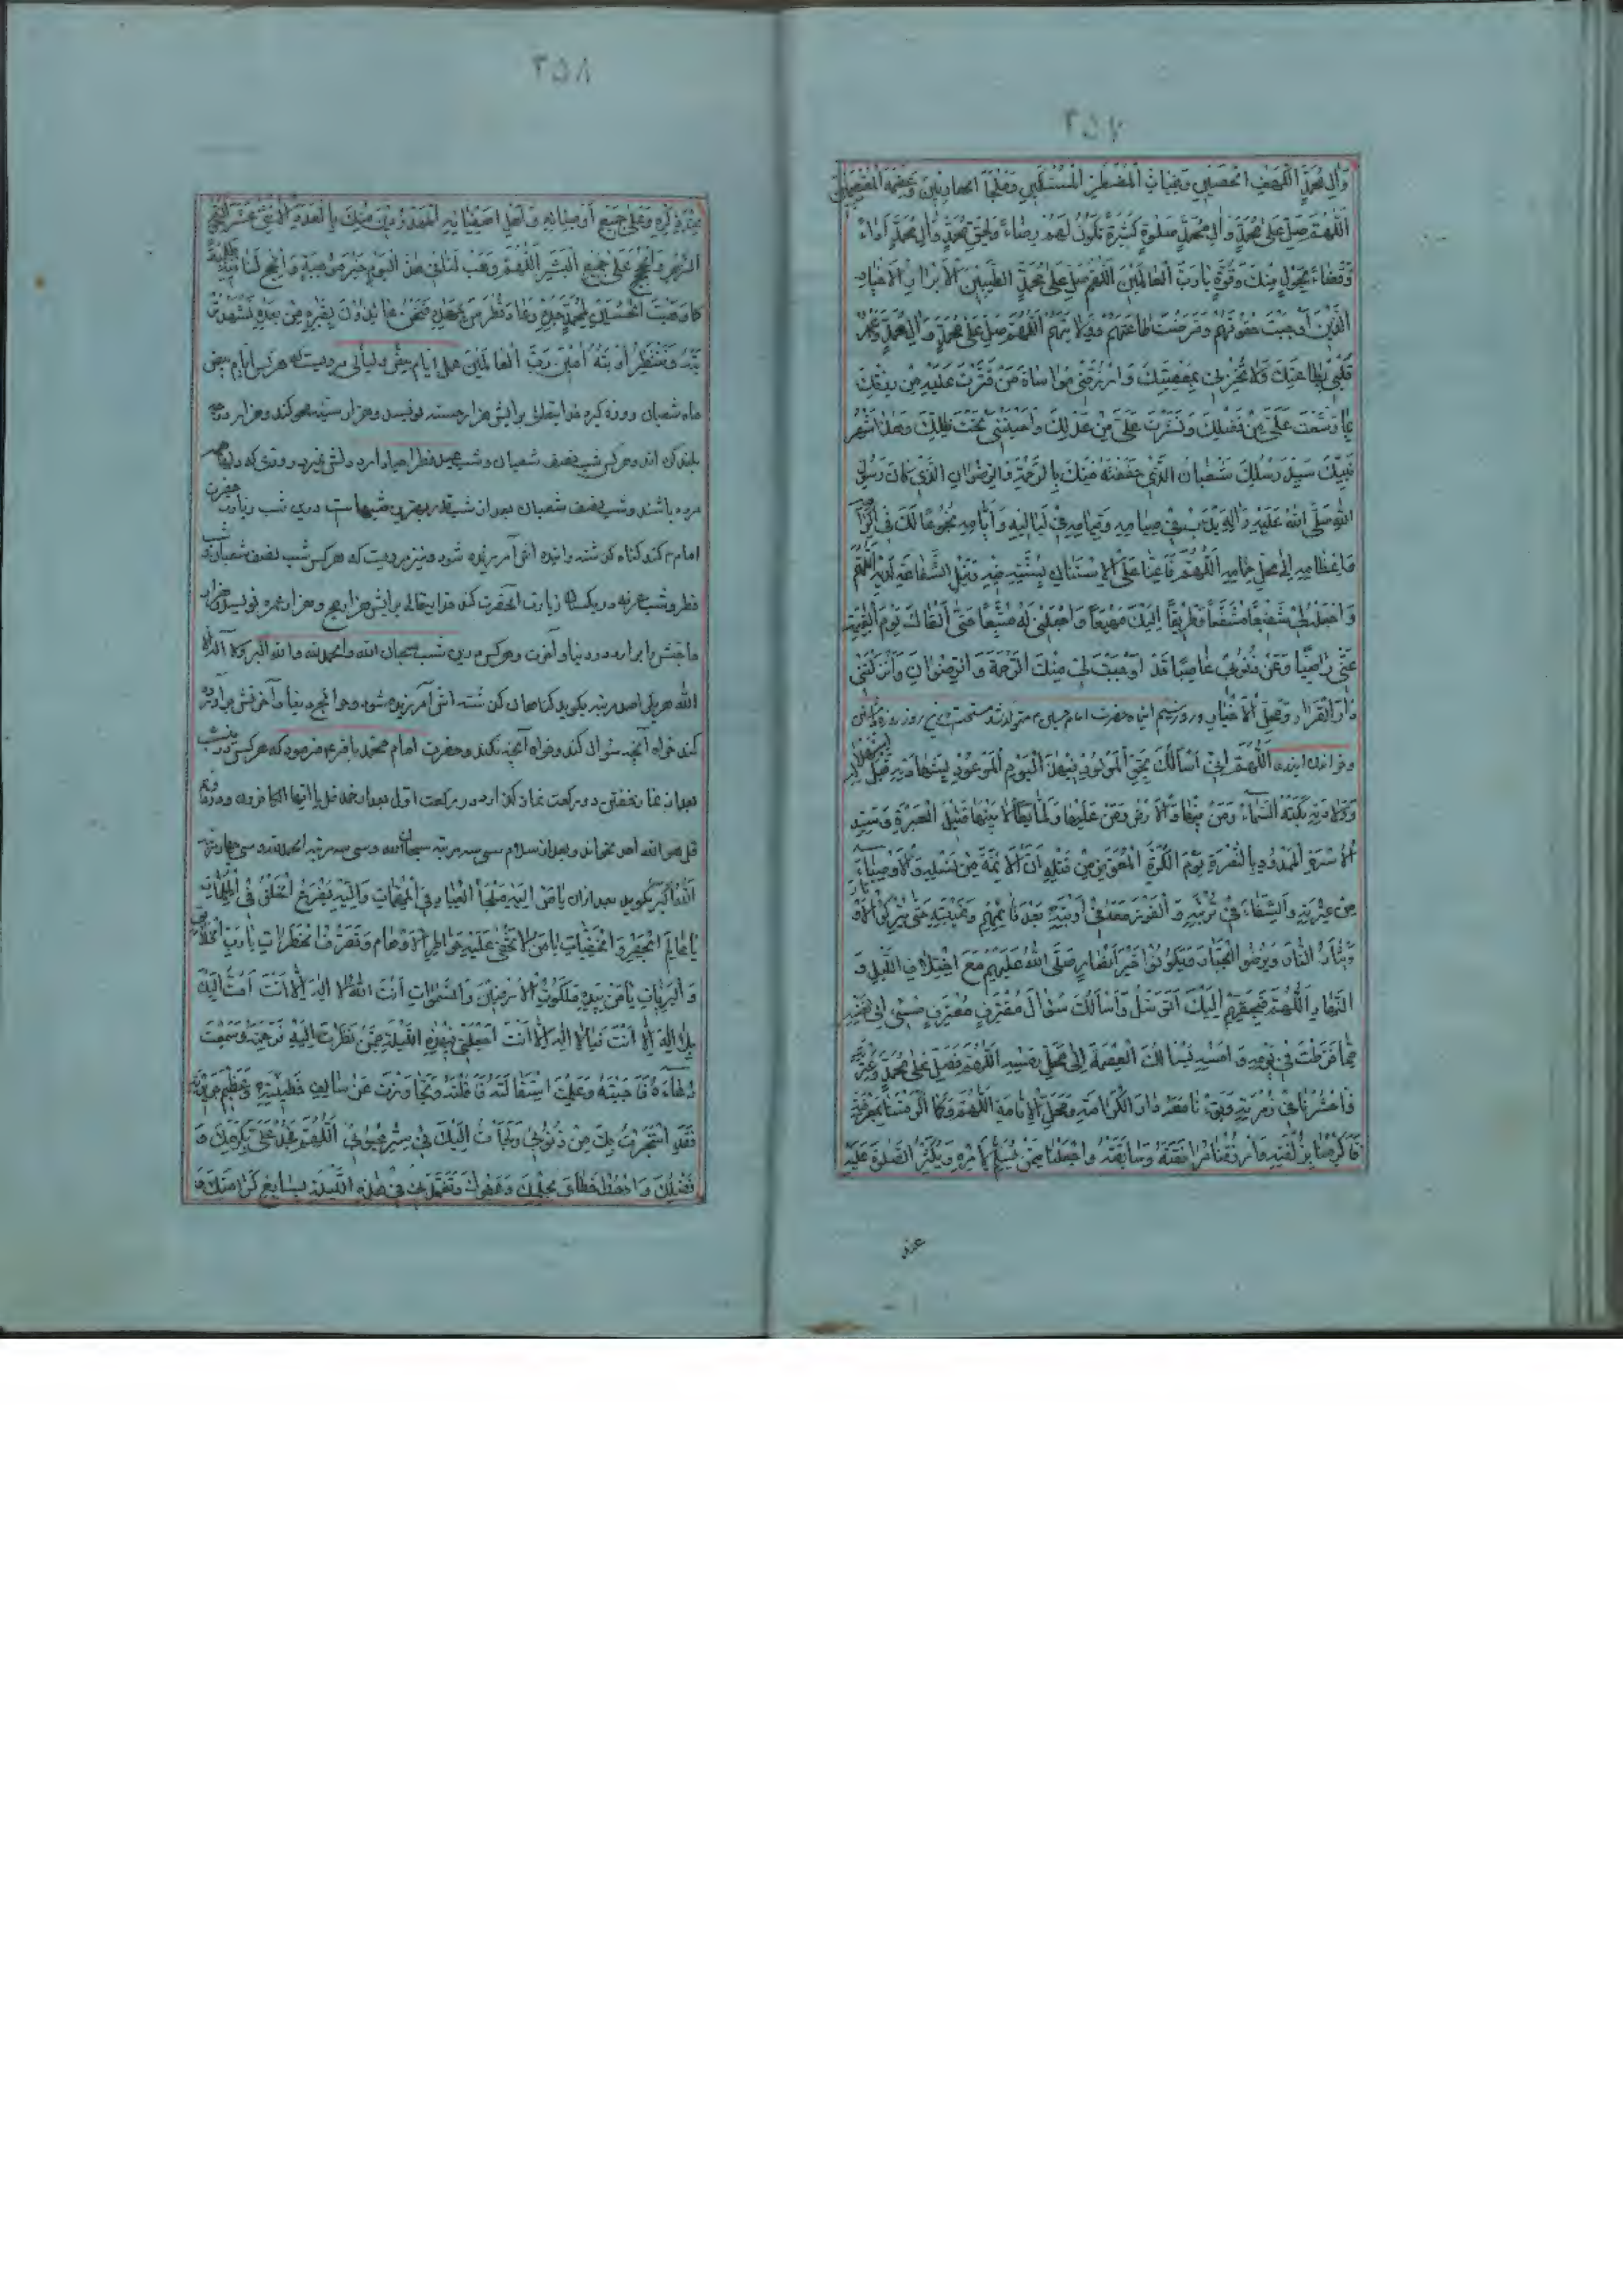 ٢۵٧
وَآلِ مُحَمَّدٍ الْكَهْفِ الْحَصِينِ وَغِيَاثِ الْمُضْطَرِّ الْمُسْتَكِينِ وَمَلْجَأِ الْهَارِبِينَ وَعِصْمَةِ الْمُعْتَصِمِينَ
اَللّٰهُمَّ صَلِّ عَلَى مُحَمَّدٍ وَآلِ مُحَمَّدٍ صَلٰوةً كَثِيرَةً تَكُونُ لَهُمْ رِضَاءً وَلِحَقِّ مُحَمَّدٍ وَآلِ مُحَمَّدٍ أَدَاءً
وَقَضَاءً بِحَوْلٍ مِنْكَ وَقُوَّةٍ يَا رَبَّ الْعَالَمِينَ اَللّٰهُمَّ صَلِّ عَلَى مُحَمَّدٍ الطَّيِّبِينَ الْأَبْرَارِ الْأَخْيَارِ
الَّذِينَ أَوْجَبْتَ حُقُوقَهُمْ وَفَرَضْتَ طَاعَتَهُمْ وَوِلَايَتَهُمْ اَللّٰهُمَّ صَلِّ عَلَى مُحَمَّدٍ وَآلِ مُحَمَّدٍ وَاعْمُرْ
قَلْبِي بِطَاعَتِكَ وَلَا تُخْزِنِي بِمَعْصِيَتِكَ وَارْزُقْنِي مُوَاسَاةَ مَنْ قَتَّرْتَ عَلَيْهِ مِنْ رِزْقِكَ
بِمَا وَسَّعْتَ عَلَيَّ مِنْ فَضْلِكَ وَنَشَرْتَ عَلَيَّ مِنْ عَدْلِكَ وَأَحْيَيْتَنِي تَحْتَ ظِلِّكَ وَهٰذَا شَهْرُ
نَبِيِّكَ سَيِّدِ رُسُلِكَ شَعْبَانُ الَّذِي حَفَفْتَهُ مِنْكَ بِالرَّحْمَةِ وَالرِّضْوَانِ الَّذِي كَانَ رَسُولُ
اللّٰهِ صَلَّى اللّٰهُ عَلَيْهِ وَآلِهِ يَدْأَبُ فِي صِيَامِهِ وَقِيَامِهِ فِي لَيَالِيهِ وَأَيَّامِهِ بُخُوعًا لَكَ فِي إِكْرَامِهِ
وَإِعْظَامِهِ إِلَى مَحَلِّ حِمَامِهِ اَللّٰهُمَّ فَأَعِنَّا عَلَى الْاِسْتِنَانِ بِسُنَّتِهِ فِيهِ وَنَيْلِ الشَّفَاعَةِ لَدَيْهِ اَللّٰهُمَّ
وَاجْعَلْهُ لِي شَفِيعًا مُشَفَّعًا وَطَرِيقًا إِلَيْكَ مَهْيَعًا وَاجْعَلْنِي لَهُ مُتَّبِعًا حَتَّى أَلْقَاكَ يَوْمَ الْقِيٰمَةِ
عَنِّي رَاضِيًا وَعَنْ ذُنُوبِي غَاضِيًا قَدْ أَوْجَبْتَ لِي مِنْكَ الرَّحْمَةَ وَالرِّضْوَانَ وَأَنْزَلْتَنِي
دَارَ الْقَرَارِ وَمَحَلَّ الْأَخْيَارِ و روز سیم این ماه حضرت امام حسین م متولد شد مستحب روزه
وخواندن ایندعا اَللّٰهُمَّ إِنِّي أَسْأَلُكَ بِحَقِّ الْمَوْلُودِ فِي هٰذَا الْيَوْمِ الْمَوْعُودِ بِشَهَادَتِهِ قَبْلَ اسْتِهْلَالِهِ
وَوِلَادَتِهِ بَكَتْهُ السَّمَاءُ وَمَنْ فِيهَا وَالْأَرْضُ وَمَنْ عَلَيْهَا وَلَمَّا يَطَأْ لَابَتَيْهَا قَتِيلِ الْعَبْرَةِ وَسَيِّدِ
الْأُسْرَةِ الْمَمْدُودِ بِالنُّصْرَةِ يَوْمَ الْكَرَّةِ الْمُعَوَّضِ مِنْ قَتْلِهِ أَنَّ الْأَئِمَّةَ مِنْ نَسْلِهِ وَالْأَوْصِيَاءَ
مِنْ عِتْرَتِهِ وَالشِّفَاءَ فِي تُرْبَتِهِ وَالْفَوْزَ مَعَهُ فِي أَوْبَتِهِ بَعْدَ قَائِمِهِمْ وَغَيْبَتِهِ حَتَّى يُدْرِكُوا الْأَوْتَارَ
وَيَثْأَرُوا الثَّارَ وَيُرْضُوا الْجَبَّارَ وَيَكُونُوا خَيْرَ أَنْصَارٍ صَلَّى اللّٰهُ عَلَيْهِمْ مَعَ اخْتِلَافِ اللَّيْلِ وَ
النَّهَارِ اَللّٰهُمَّ فَبِحَقِّهِمْ إِلَيْكَ أَتَوَسَّلُ وَأَسْأَلُكَ سُؤَالَ مُقْتَرِفٍ مُعْتَرِفٍ مُسِيءٍ إِلَى نَفْسِهِ
مِمَّا فَرَّطَ فِي يَوْمِهِ وَأَمْسِهِ يَسْأَلُكَ الْعِصْمَةَ إِلَى مَحَلِّ رَمْسِهِ اَللّٰهُمَّ فَصَلِّ عَلَى مُحَمَّدٍ وَعِتْرَتِهِ
فَاحْشُرْنَا فِي زُمْرَتِهِ وَبَوِّئْنَا مَعَهُ دَارَ الْكَرَامَةِ وَمَحَلَّ الْإِقَامَةِ اَللّٰهُمَّ وَكَمَا أَكْرَمْتَنَا بِمَعْرِفَتِهِ
فَأَكْرِمْنَا بِزُلْفَتِهِ وَارْزُقْنَا مُرَافَقَتَهُ وَسَابِقَتَهُ وَاجْعَلْنَا مِمَّنْ يُسَلِّمُ لِأَمْرِهِ وَيُكْثِرُ الصَّلٰوةَ عَلَيْهِ
عند
٢۵٨
عِنْدَ ذِكْرِهِ وَعَلَى جَمِيعِ أَوْصِيَائِهِ وَأَهْلِ أَصْفِيَائِهِ الْمَعْدُودِينَ مِنْكَ بِالْعَدَدِ الْاِثْنَيْ عَشَرَ النُّجُومِ
الزُّهَرِ وَالْحُجَجِ عَلَى جَمِيعِ الْبَشَرِ اَللّٰهُمَّ وَهَبْ لَنَا فِي هٰذَا الْيَوْمِ خَيْرَ مَوْهِبَةٍ وَأَنْجِحْ لَنَا فِيهِ كُلَّ طَلِبَةٍ
كَمَا وَهَبْتَ الْحُسَيْنَ لِمُحَمَّدٍ جَدِّهِ وَعَاذَ فُطْرُسُ بِمَهْدِهِ فَنَحْنُ عَائِذُونَ بِقَبْرِهِ مِنْ بَعْدِهِ نَشْهَدُ تُرْ
بَتَهُ وَنَنْتَظِرُ أَوْبَتَهُ آمِينَ رَبَّ الْعَالَمِينَ ایام بیض و لیالی مرویست که هرکس ایام بیض
ماه شعبان روزه گیرد خدایتعالی برایش هزار حسنه نویسد وهزار سیئه محو کند وهزار درجه
بلند کرداند وهرکس شب نصف شعبان وشب عید فطر احیا دارد دلش نمیرد روزی که دلها
مرده باشند وشب نصف شعبان بعد از شب قدر بهترین شبهاست ودرین شب زیارت حضرت
امام م کند کناه کذشته وآینده اش آمرزیده شود ونیز مرویست که هرکس شب نصف شعبان وشب
فطر وشب عرفه در یکسال زیارت آنحضرت کند خدایتعالی برایش هزار حج وهزار عمره نویسد وهزار
حاجتش را برآرد در دنیا وآخرت وهرکس درین شب سبحان الله والحمد لله والله اکبر ولا آله الا
الله هر یکی صد مرتبه بکوید کناهان کذشته اش آمرزیده شود وحوائج دنیا وآخرتش برآورده
کند خواه آنچه سوال کند وخواه آنچه نکند وحضرت امام محمد باقر ع فرمود که هرکس درین شب
بعد از نماز خفتن دو رکعت نماز کذارد در رکعت اول بعد از حمد قل یا ایها الکافرون ودر دوم
قل هو الله احد بخواند وبعد از سلام سی سه مرتبه سبحان الله وسی سه مرتبه الحمد لله وسی چهار مرتبه
اَللّٰهُ أَكْبَرُ بکوید بعد ازان يَا مَنْ إِلَيْهِ مَلْجَأُ الْعِبَادِ فِي الْمُهِمَّاتِ وَإِلَيْهِ يَفْزَعُ الْخَلْقُ فِي الْمُلِمَّاتِ
يَا عَالِمَ الْجَهْرِ وَالْخَفِيَّاتِ يَا مَنْ لَا تَخْفَى عَلَيْهِ خَوَاطِرُ الْأَوْهَامِ وَتَصَرُّفُ الْخَطَرَاتِ يَا رَبَّ الْخَلَائِقِ
وَالْبَرِيَّاتِ يَا مَنْ بِيَدِهِ مَلَكُوتُ الْأَرَضِينَ وَالسَّمٰوَاتِ أَنْتَ اللّٰهُ لَا إِلٰهَ إِلَّا أَنْتَ أَمُتُّ إِلَيْكَ
بِلَا إِلٰهَ إِلَّا أَنْتَ فَيَا لَا إِلٰهَ إِلَّا أَنْتَ اجْعَلْنِي فِي هٰذِهِ اللَّيْلَةِ مِمَّنْ نَظَرْتَ إِلَيْهِ فَرَحِمْتَهُ وَسَمِعْتَ
دُعَاءَهُ فَأَجَبْتَهُ وَعَلِمْتَ اسْتِقَالَتَهُ فَأَقَلْتَهُ وَتَجَاوَزْتَ عَنْ سَالِفِ خَطِيئَتِهِ وَعَظِيمِ جَرِيرَتِهِ
فَقَدِ اسْتَجَرْتُ بِكَ مِنْ ذُنُوبِي وَلَجَأْتُ إِلَيْكَ فِي سَتْرِ عُيُوبِي اَللّٰهُمَّ فَجُدْ عَلَيَّ بِكَرَمِكَ وَ
فَضْلِكَ وَاحْطُطْ خَطَايَايَ بِحِلْمِكَ وَعَفْوِكَ وَتَغَمَّدْنِي فِي هٰذِهِ اللَّيْلَةِ بِسَابِغِ كَرَامَتِكَ وَ